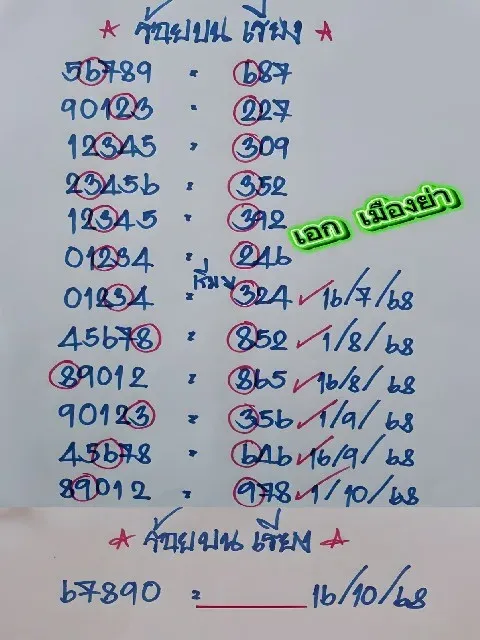 ร้อยบน เรียง
56789 = 687
90123 = 227
12345 = 309
23456 = 352
12345 = 392
เอก เมืองย่า
01234 = 246
เริ่ม
01234 = 324 ✓ 16/7/68
45678 = 852 ✓ 1/8/68
89012 = 865 ✓ 16/8/68
90123 = 356 ✓ 1/9/68
45678 = 646 ✓ 16/9/68
89012 = 978 ✓ 1/10/68
ร้อยบน เรียง
67890 = ______ 16/10/68